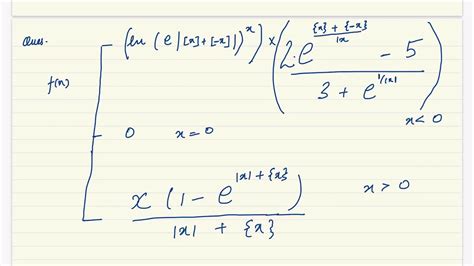 Ques.
f(x)
(ln (e |[x]+[-x]|)^x) × (2.e^{({x} + {-x})/|x|} - 5) / (3 + e^{1/|x|})
x < 0
0 x = 0
x (1 - e^{|x| + {x}}) / (|x| + {x})
x > 0